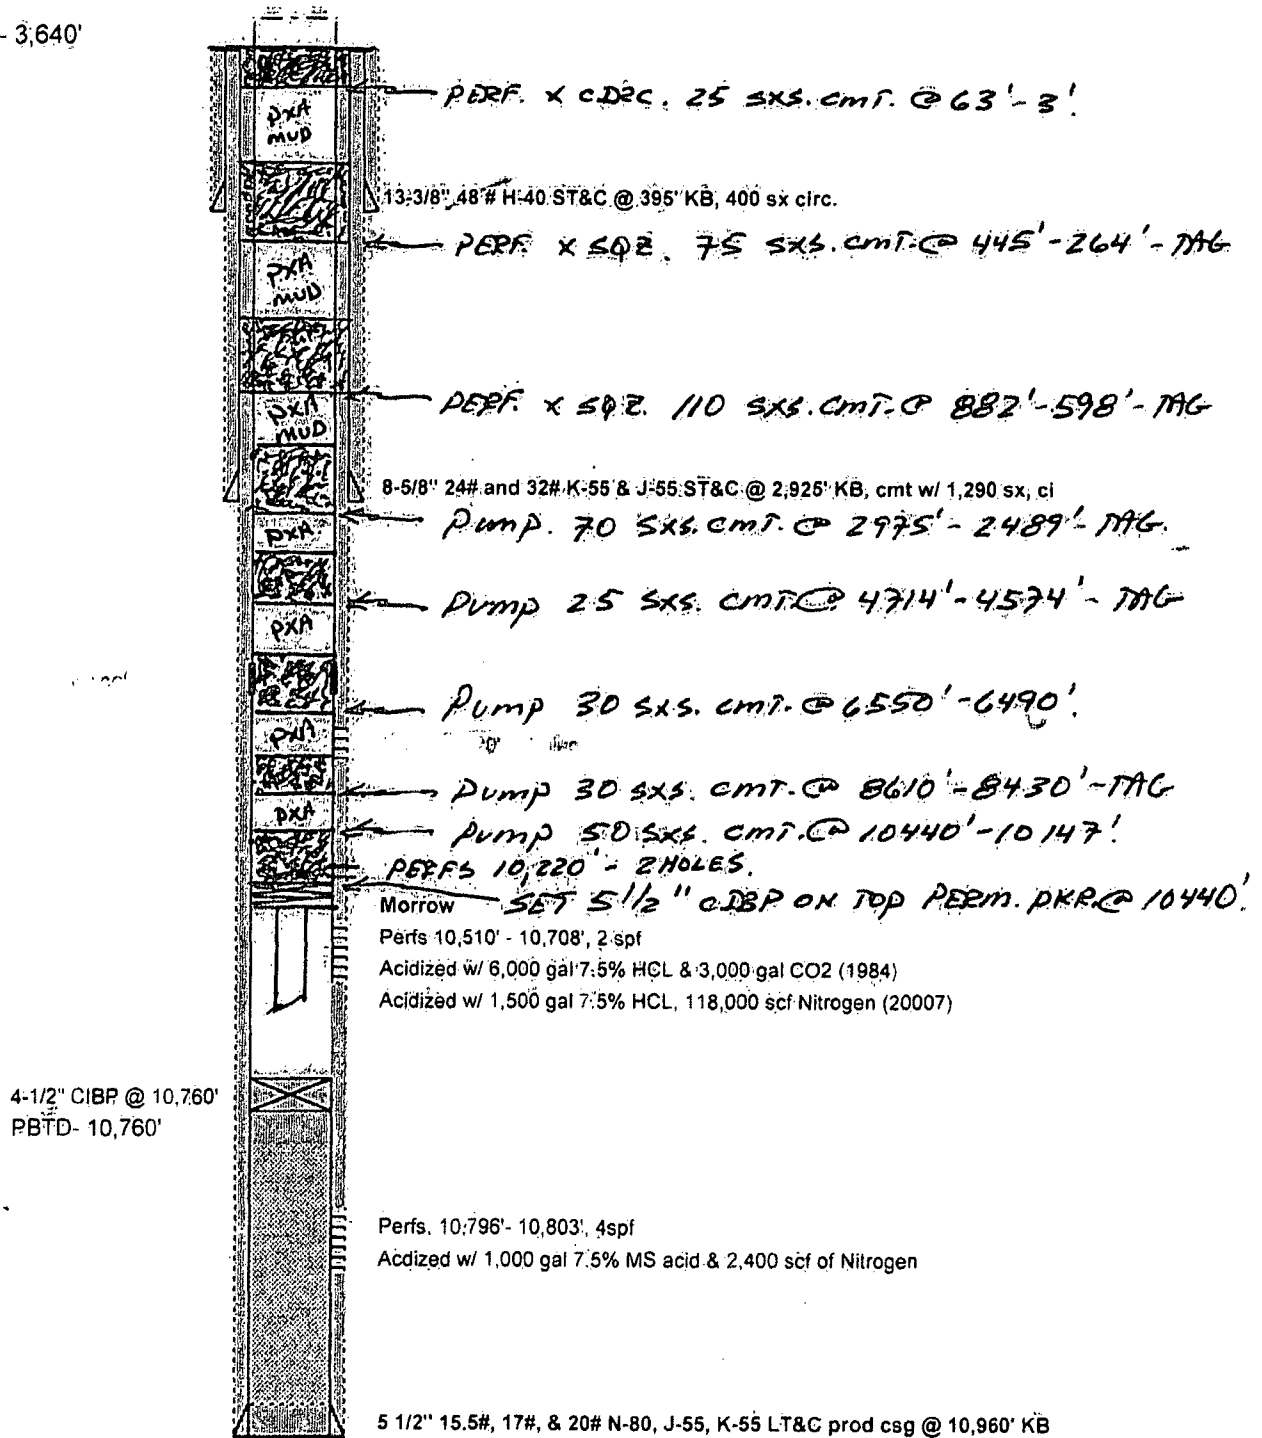 - 3,640'
PERF. X CIRC. 25 SXS. CMT. @ 63'-3'.
PXA
MUD
13-3/8" 48# H-40 ST&C @ 395' KB, 400 sx circ.
PERF. X SQZ. 75 SXS. CMT. @ 445'-264'-TAG
PXA
MUD
PERF. X SQZ. 110 SXS. CMT. @ 882'-598'-TAG
PXA
MUD
8-5/8" 24# and 32# K-55 & J-55 ST&C @ 2,925' KB, cmt w/ 1,290 sx, ci
Pump. 70 SXS. CMT. @ 2975'-2489'-TAG.
PXA
Pump 25 SXS. CMT. @ 4714'-4574'-TAG
PXA
Pump 30 SXS. CMT. @ 6550'-6490'.
PXA
Pump 30 SXS. CMT. @ 8610'-8430'-TAG
PXA
Pump 50 SXS. CMT. @ 10440'-10147'.
PERFS 10,220' - 2 HOLES.
SET 5 1/2" CIBP ON TOP PERM. PKR. @ 10440'.
Morrow
Perfs 10,510' - 10,708', 2 spf
Acidized w/ 6,000 gal 7.5% HCL & 3,000 gal CO2 (1984)
Acidized w/ 1,500 gal 7.5% HCL, 118,000 scf Nitrogen (20007)
4-1/2" CIBP @ 10,760'
PBTD- 10,760'
Perfs, 10,796'- 10,803', 4spf
Acdized w/ 1,000 gal 7.5% MS acid & 2,400 scf of Nitrogen
5 1/2" 15.5#, 17#, & 20# N-80, J-55, K-55 LT&C prod csg @ 10,960' KB